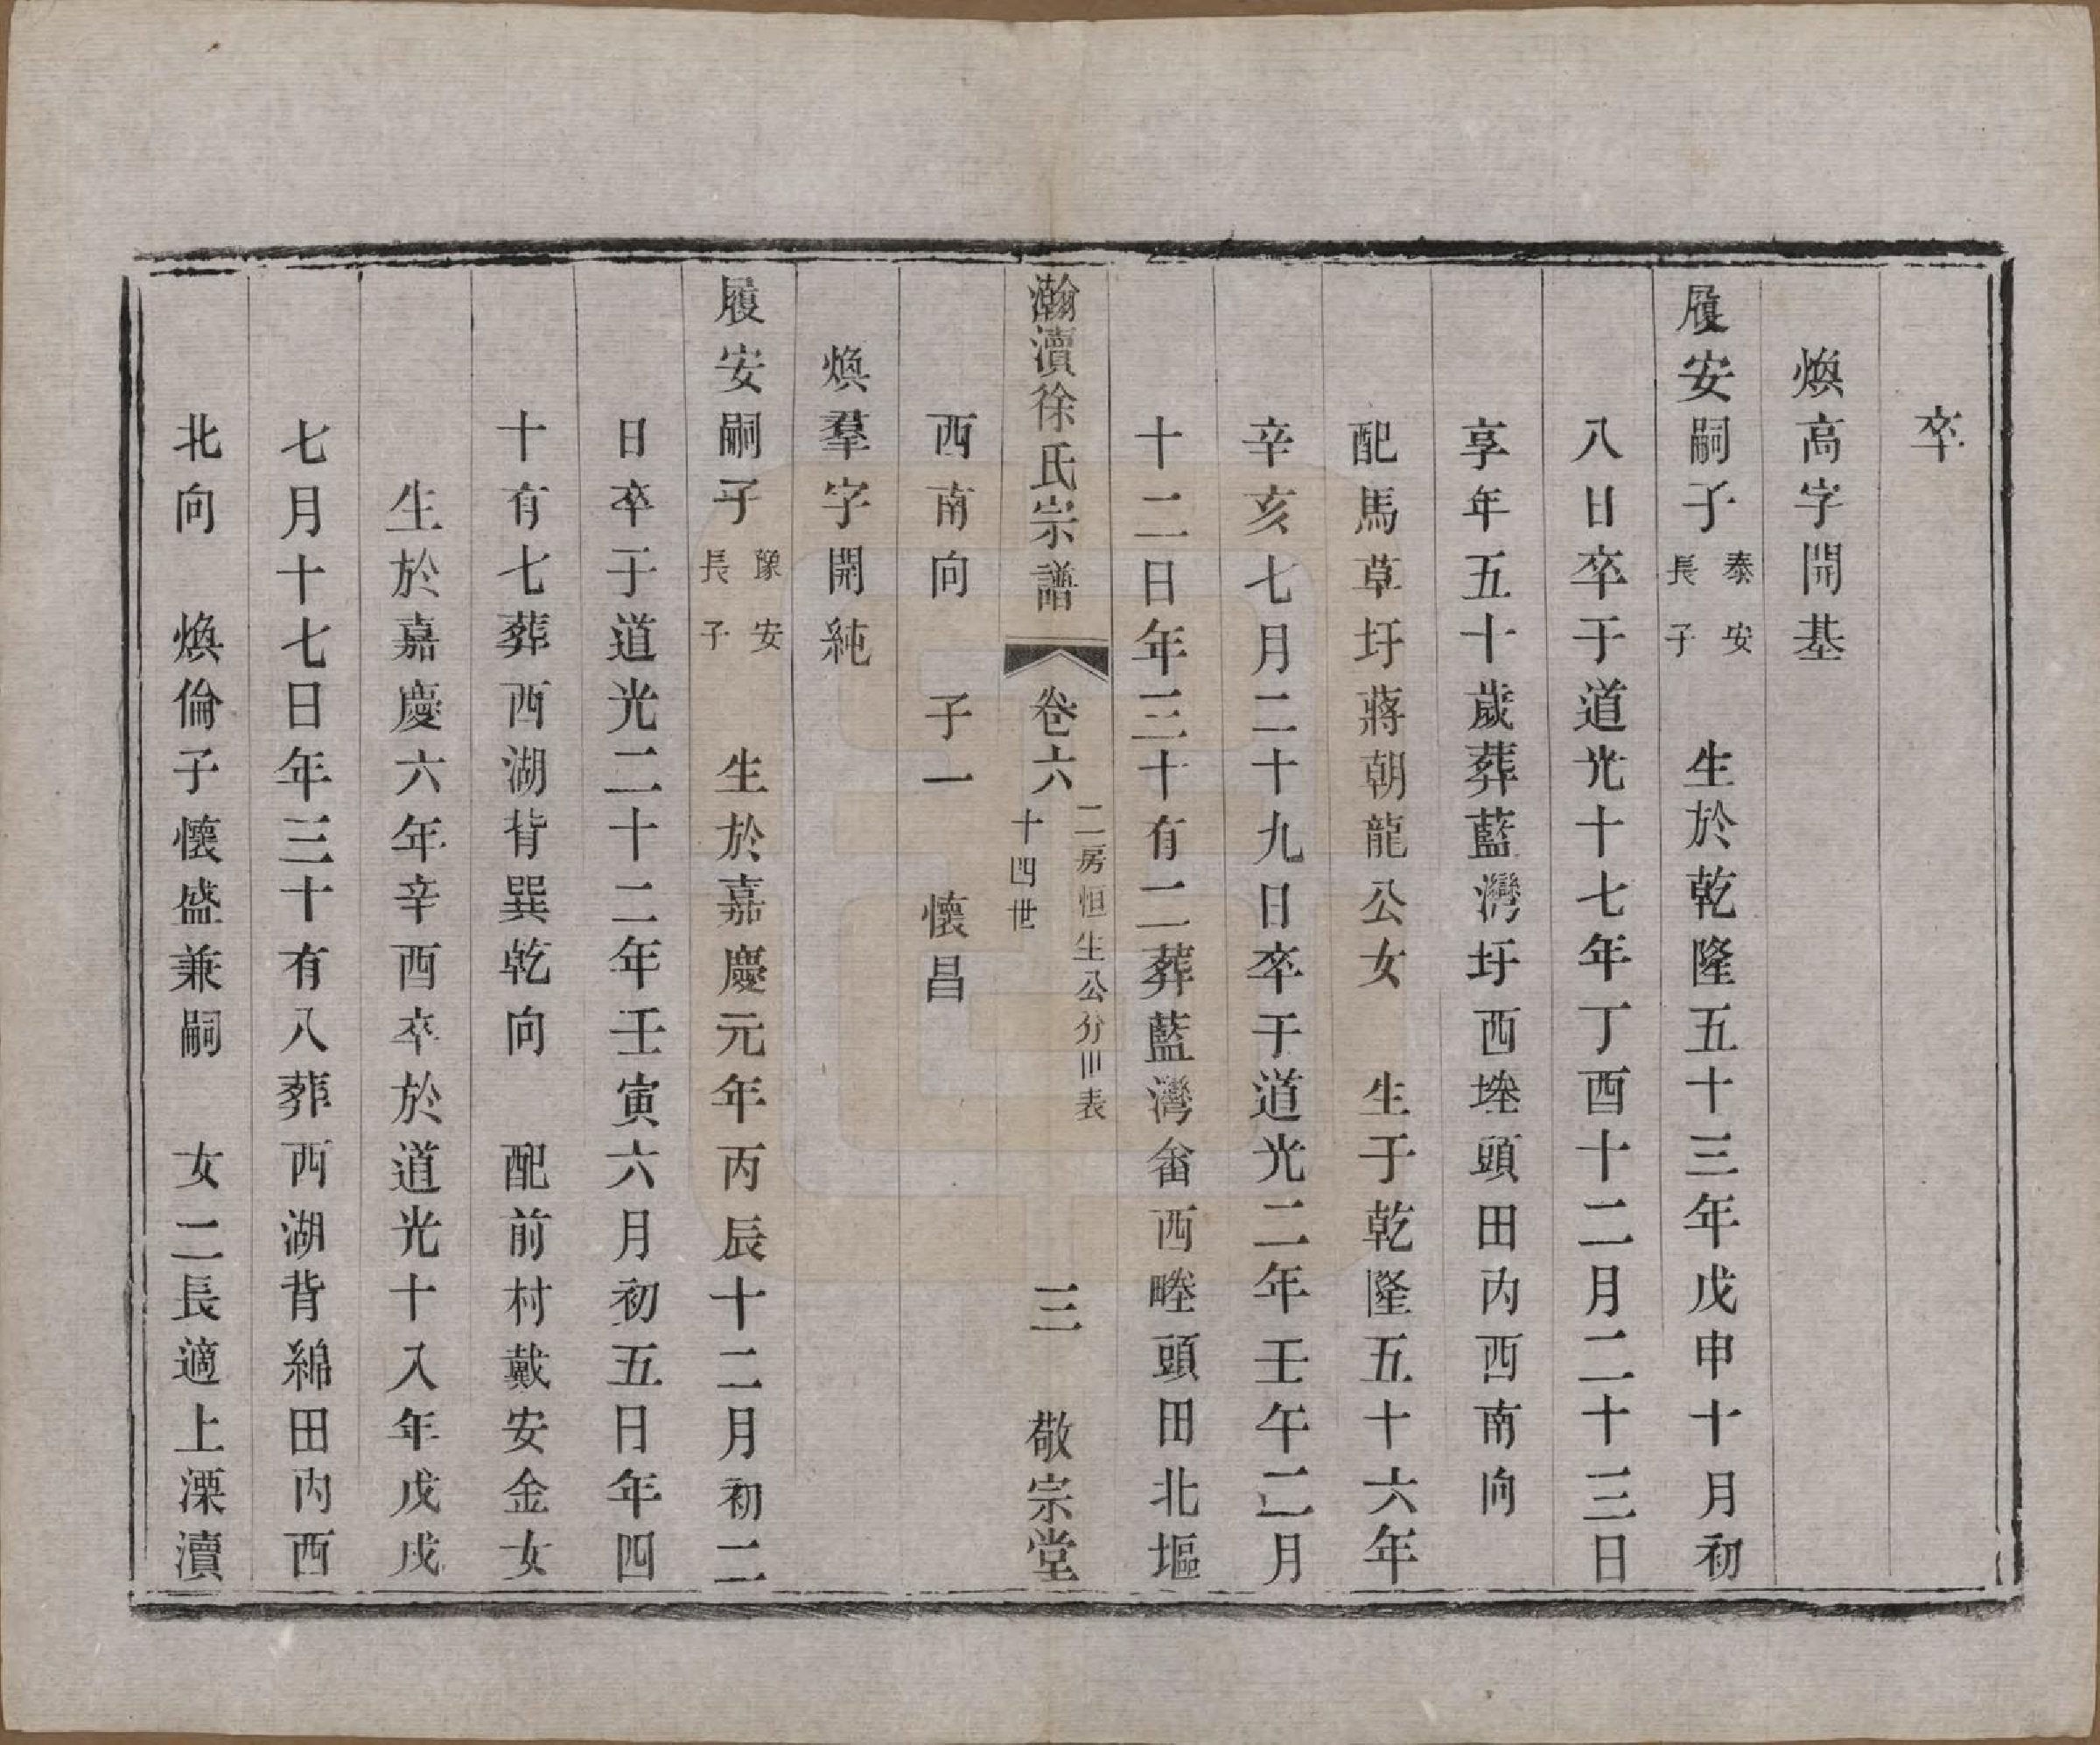 卒
煥高字開基
履安嗣子泰安長子　生於乾隆五十三年戊申十月初
八日卒于道光十七年丁酉十二月二十三日
享年五十歲葬藍灣圩西埢頭田內西南向
配馬草圩蔣朝龍公女　生于乾隆五十六年
辛亥七月二十九日卒于道光二年壬午二月
十二日年三十有二葬藍灣畲西睦頭田北堰
瀚瀆徐氏宗譜　卷六　二房恒生公分川表　十四世　三　敬宗堂
西南向　子一　懷昌
煥羣字開純
履安嗣子豫安長子　生於嘉慶元年丙辰十二月初二
日卒于道光二十二年壬寅六月初五日年四
十有七葬西湖背巽乾向　配前村戴安金女
生於嘉慶六年辛酉卒於道光十八年戊戌
七月十七日年三十有八葬西湖背綿田內西
北向　煥倫子懷盛兼嗣　女二長適上溧瀆